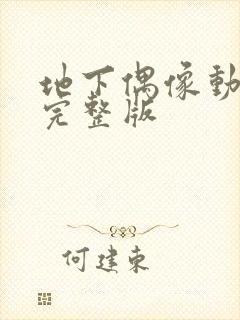 地下偶像動
完整版
何建東